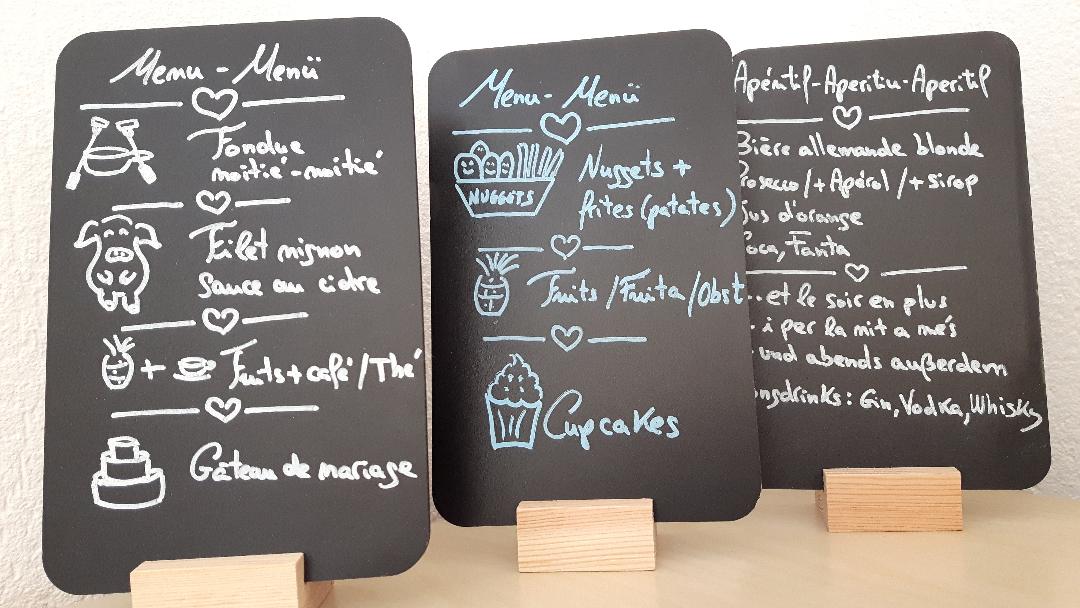 Menu - Menü
Fondue
moitié-moitié
Filet mignon
Sauce au cidre
+ Fruits + café/Thé
Gâteau de mariage
Menu - Menü
NUGGETS
Nuggets +
frites (patates)
Fruits/Fruita/Obst
Cupcakes
Apéritif-Aperitiu-Aperitif
Bière allemande blonde
Prosecco/+Apérol/+sirop
Jus d'orange
Coca, Fanta
...et le soir en plus
i per la nit a més
und abends außerdem
ongdrinks: Gin, Vodka, Whisky